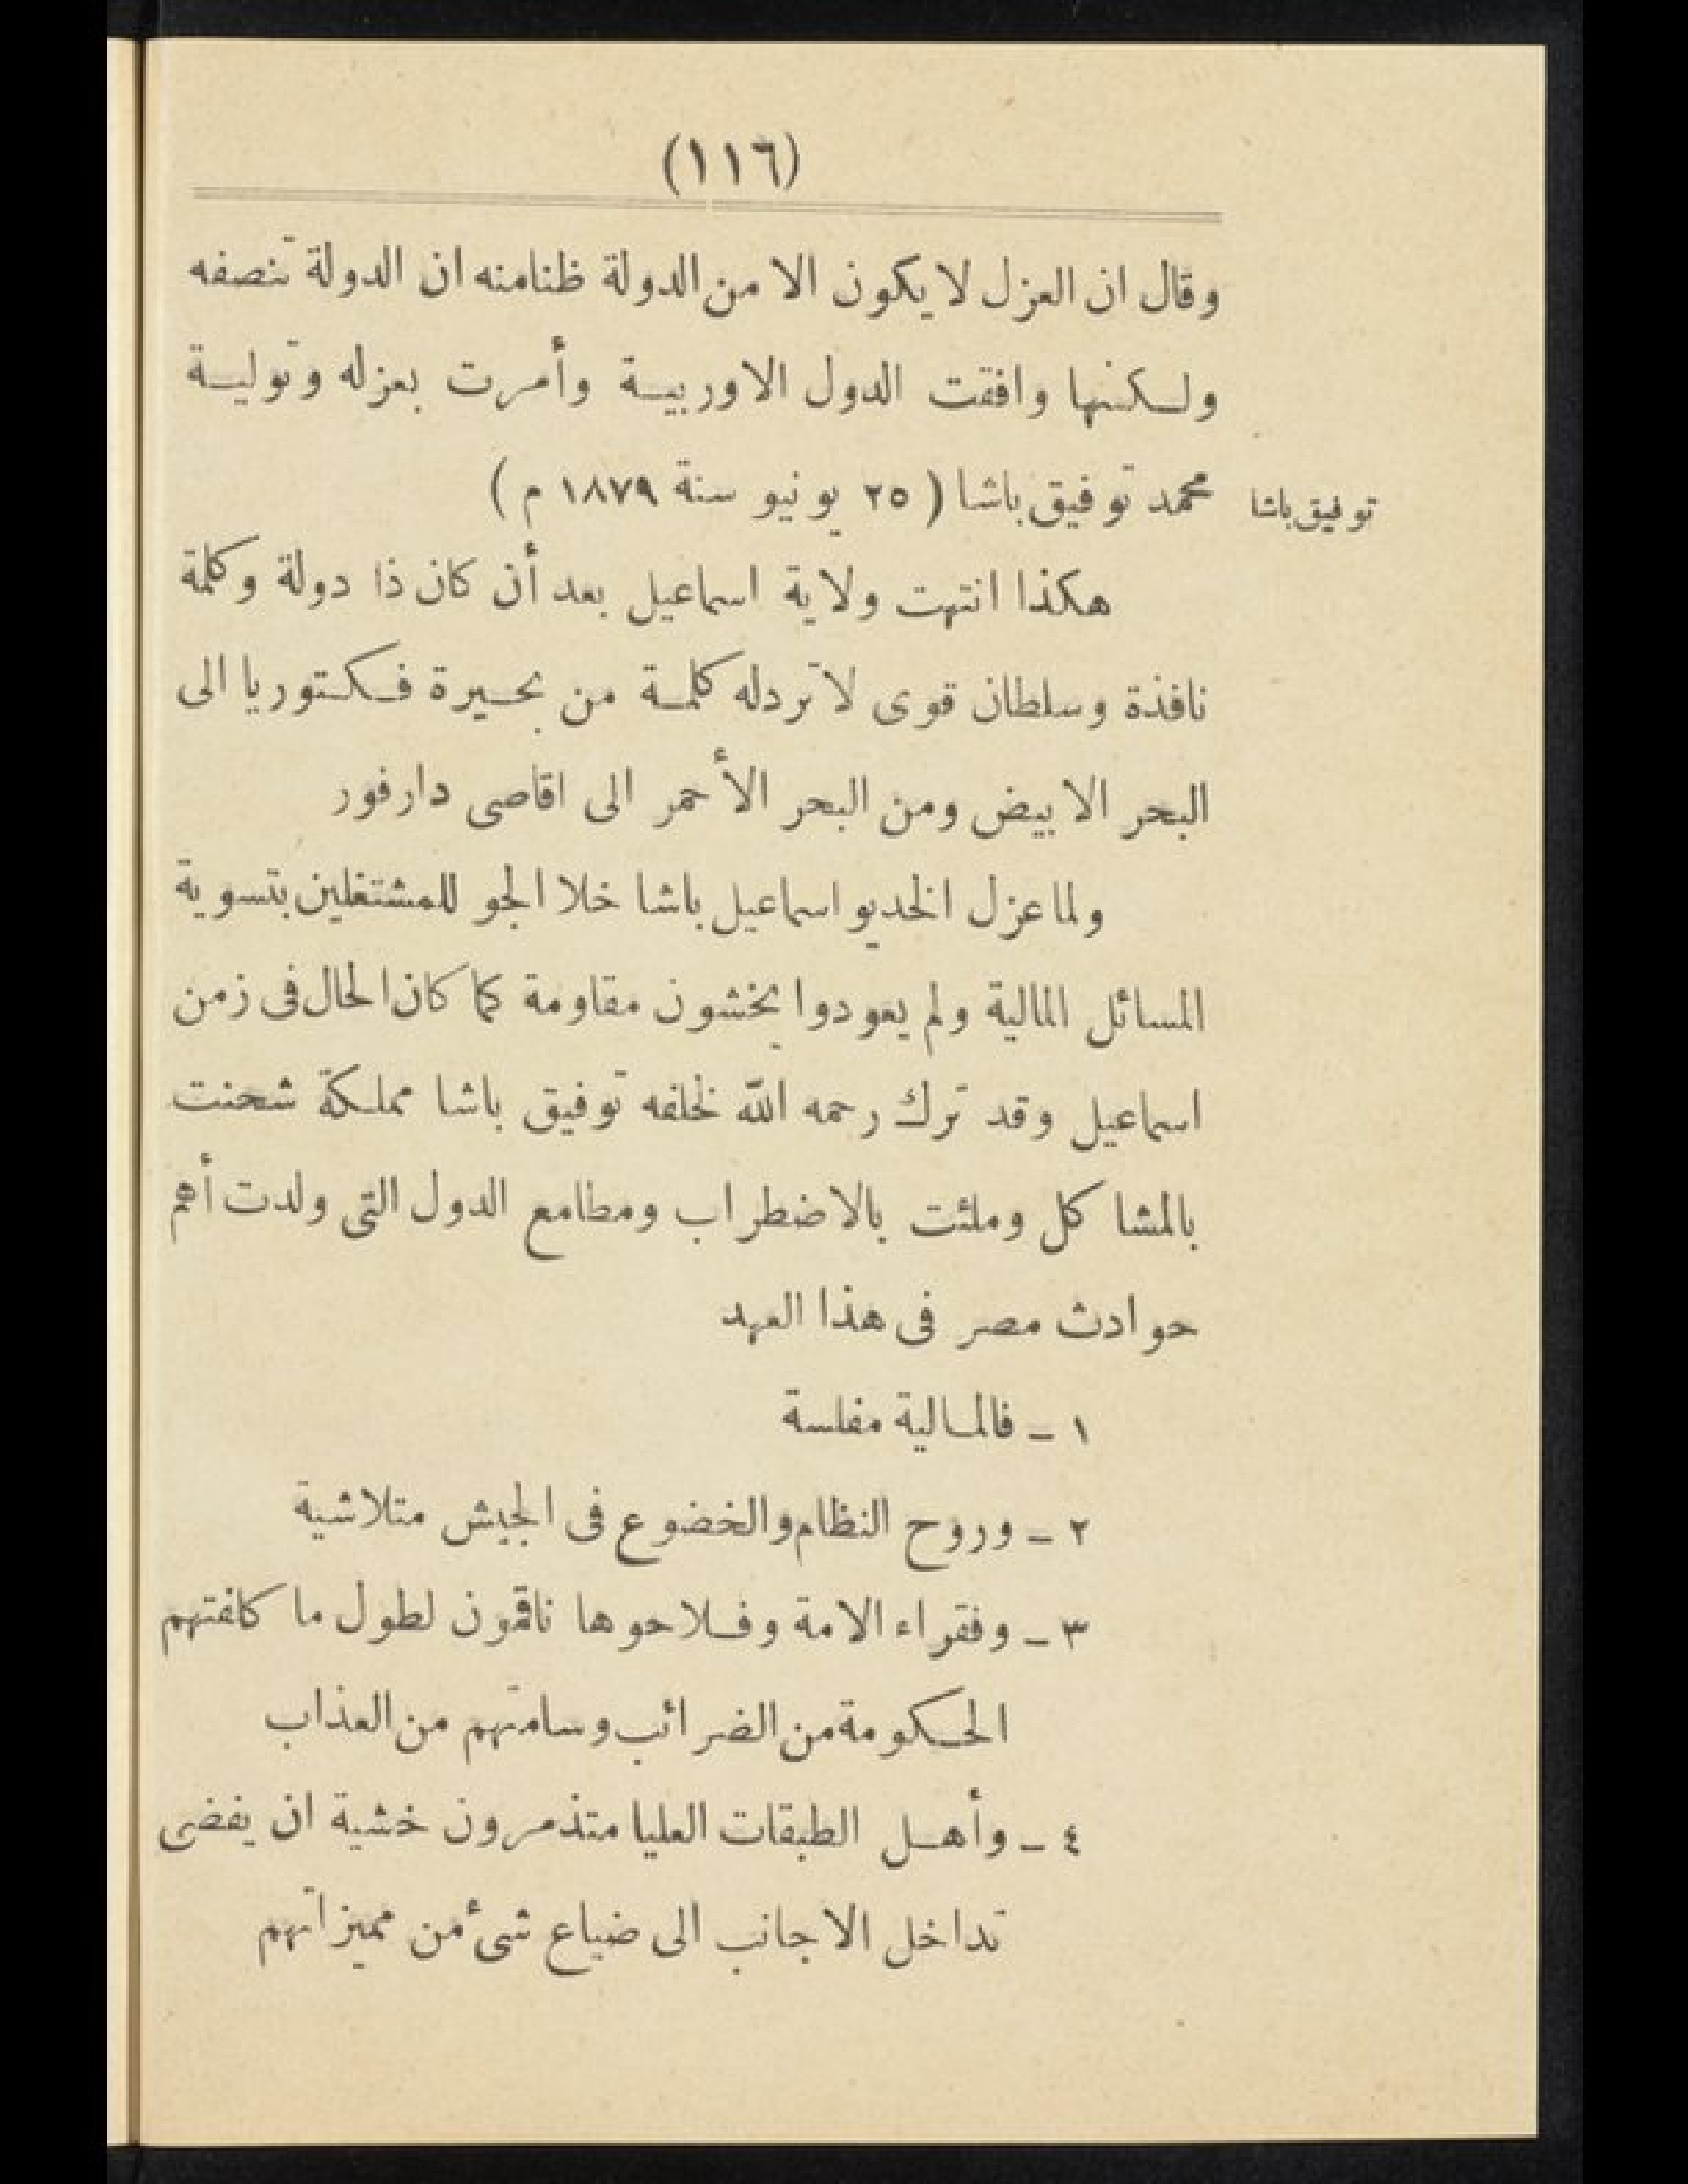 (١١٦)
وقال ان العزل لا يكون الا من الدولة ظنا منه ان الدولة تنصفه
ولكنها وافقت الدول الاوربية وأمرت بعزله وتولية
محمد توفيق باشا ( ٢٥ يونيو سنة ١٨٧٩ م )
توفيق باشا
هكذا انتهت ولاية اسماعيل بعد أن كان ذا دولة وكلمة
نافذة وسلطان قوى لا ترد له كلمة من بحيرة فكتوريا الى
البحر الابيض ومن البحر الأحمر الى اقاصى دارفور
ولما عزل الخديو اسماعيل باشا خلا الجو للمشتغلين بتسوية
المسائل المالية ولم يعودوا يخشون مقاومة كما كان الحال فى زمن
اسماعيل وقد ترك رحمه الله لخلفه توفيق باشا مملكة شحنت
بالمشاكل وملئت بالاضطراب ومطامع الدول التى ولدت أهم
حوادث مصر فى هذا العهد
١ ـ فالمالية مفلسة
٢ ـ وروح النظام والخضوع فى الجيش متلاشية
٣ ـ وفقراء الامة وفلاحوها ناقمون لطول ما كلفتهم
الحكومة من الضرائب وسامتهم من العذاب
٤ ـ وأهل الطبقات العليا متذمرون خشية ان يفضى
تداخل الاجانب الى ضياع شئ من مميزاتهم